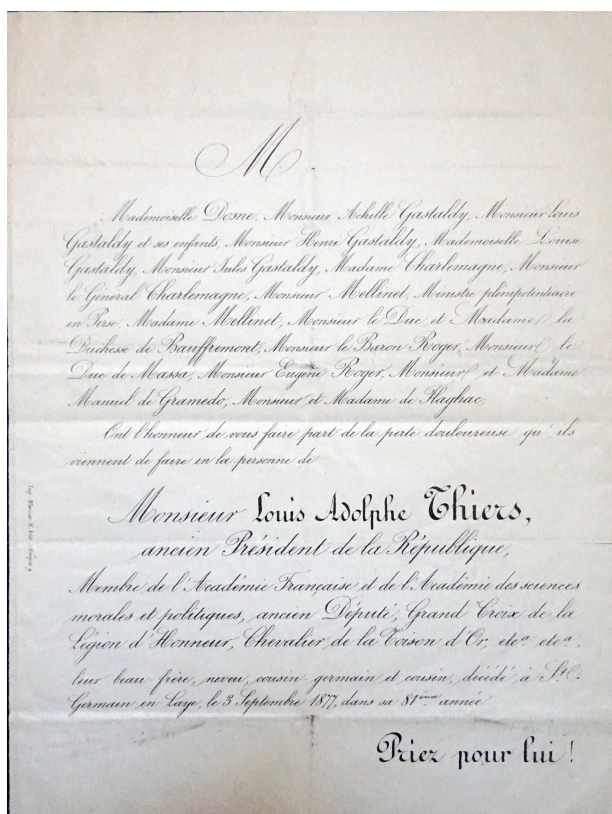 M
Mademoiselle Dosne, Monsieur Achille Gastaldy, Monsieur Louis
Gastaldy et ses enfants, Monsieur Henri Gastaldy, Mademoiselle Louise
Gastaldy, Monsieur Jules Gastaldy, Madame Charlemagne, Monsieur
le Général Charlemagne, Monsieur Mellinet, Ministre plénipotentiaire
en Perse, Madame Mellinet, Monsieur le Duc et Madame la
Duchesse de Bauffremont, Monsieur le Baron Roger, Monsieur le
Duc de Massa, Monsieur Eugène Roger, Monsieur et Madame
Manuel de Gramedo, Monsieur et Madame de Flaghac,
Ont l'honneur de vous faire part de la perte douloureuse qu'ils
viennent de faire en la personne de
Monsieur Louis Adolphe Thiers,
ancien Président de la République,
Membre de l'Académie Française et de l'Académie des sciences
morales et politiques, ancien Député, Grand Croix de la
Légion d'Honneur, Chevalier de la Toison d'Or, etc.ª etc.ª,
leur beau frère, neveu, cousin germain et cousin, décédé à St
Germain en Laye, le 3 Septembre 1877, dans sa 81ème année
Priez pour lui !